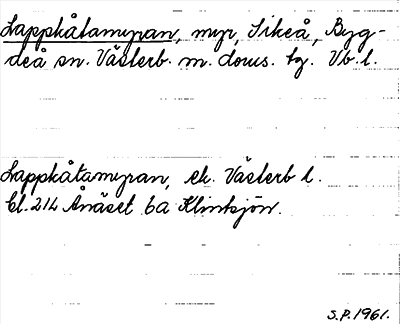 Lappkåtamyran, myr, Sikeå, Byg-
deå sn. Västerb. m. doms. tg. Vb. l.
Lappkåtamyran, ek. Västerb l.
Bl. 21L Ånäset 6a Klintsjön.
S.P. 1961.